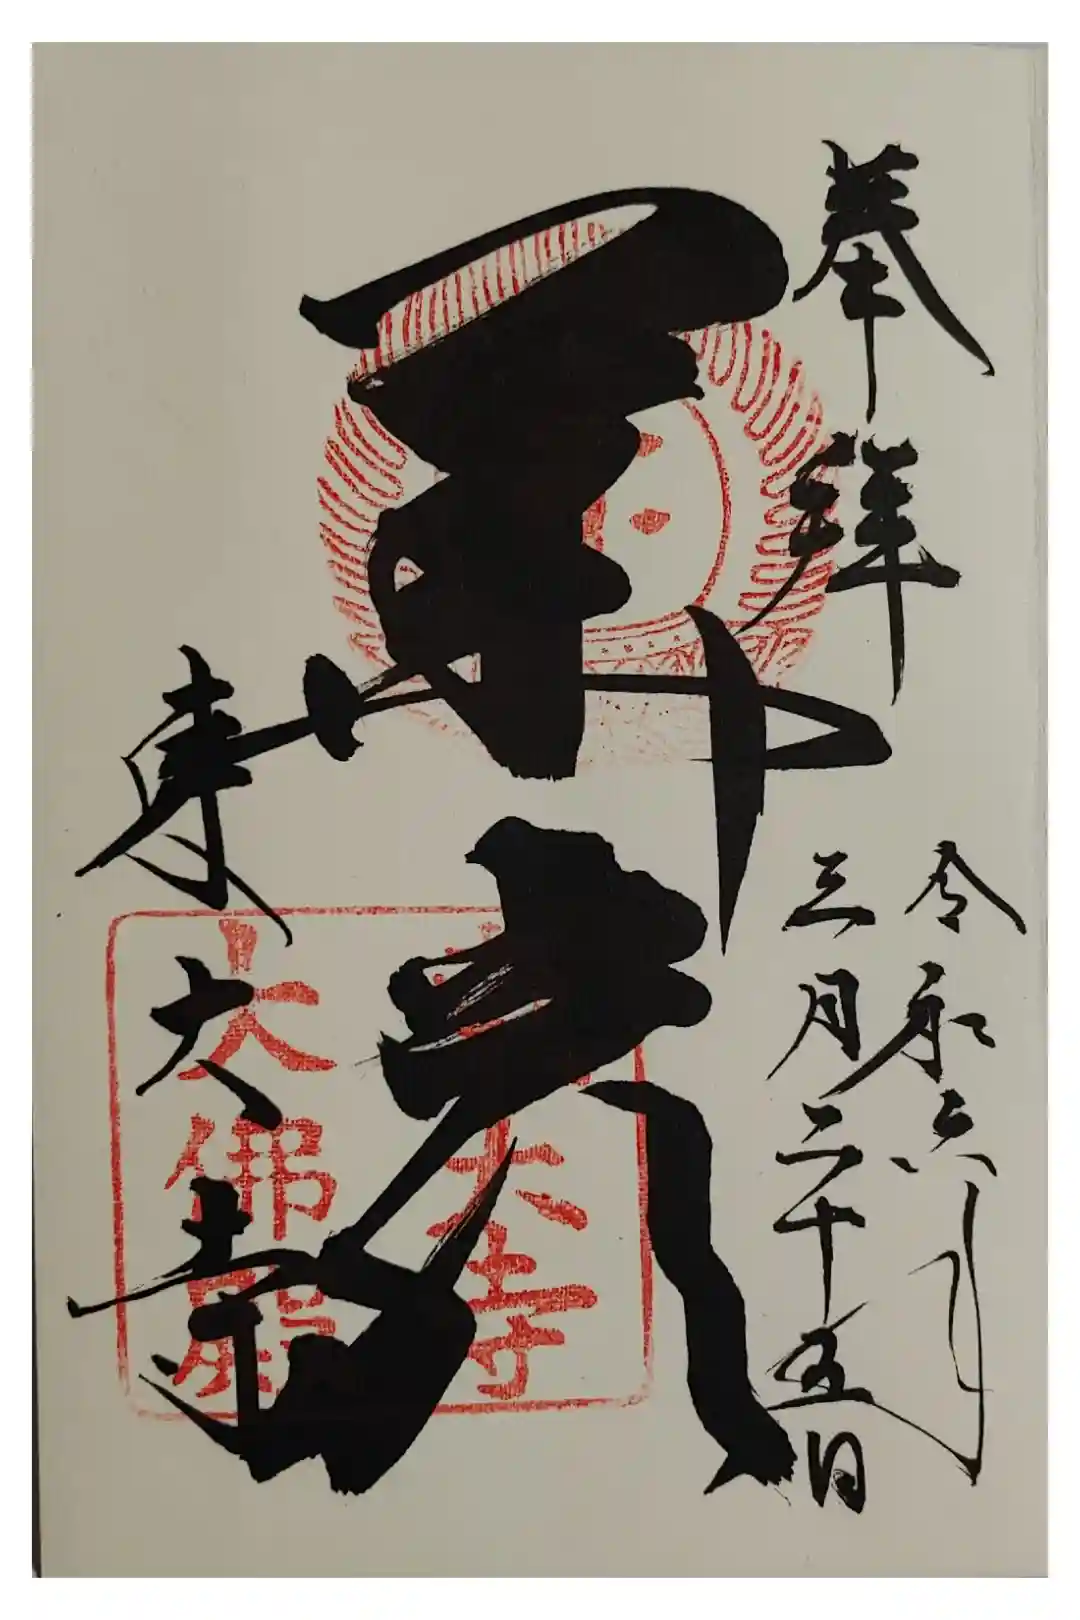 奉拝
令和六年
三月二十五日
東大寺
大寺
大佛殿